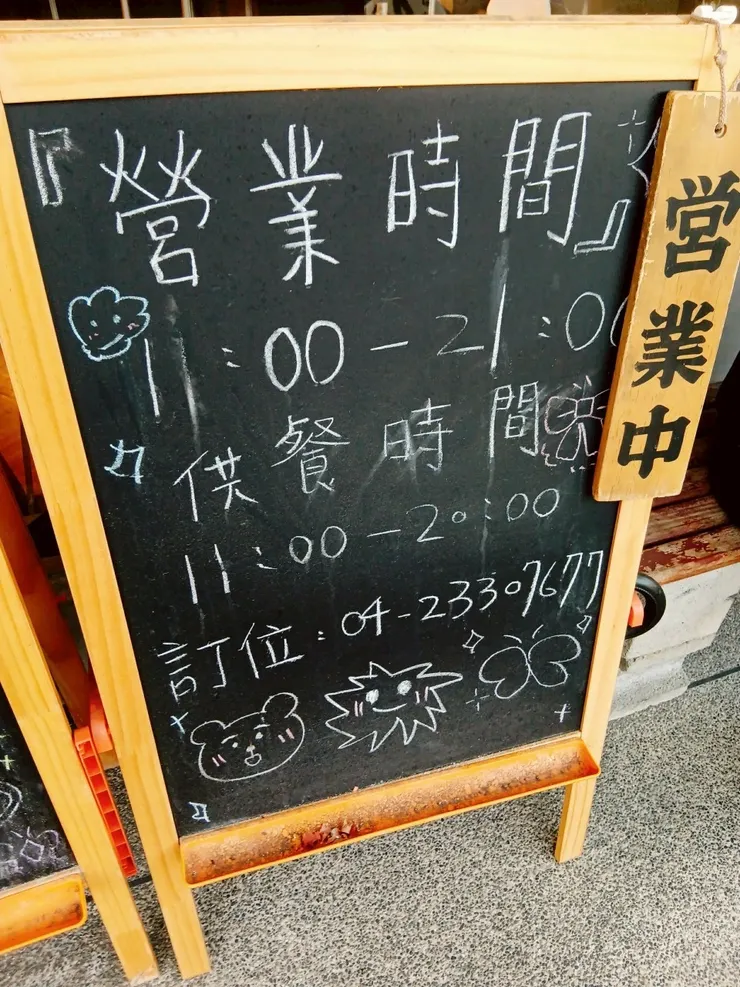 『營業時間』
11:00-21:00
供餐時間
11:00-20:00
訂位:04-23307677
営業中